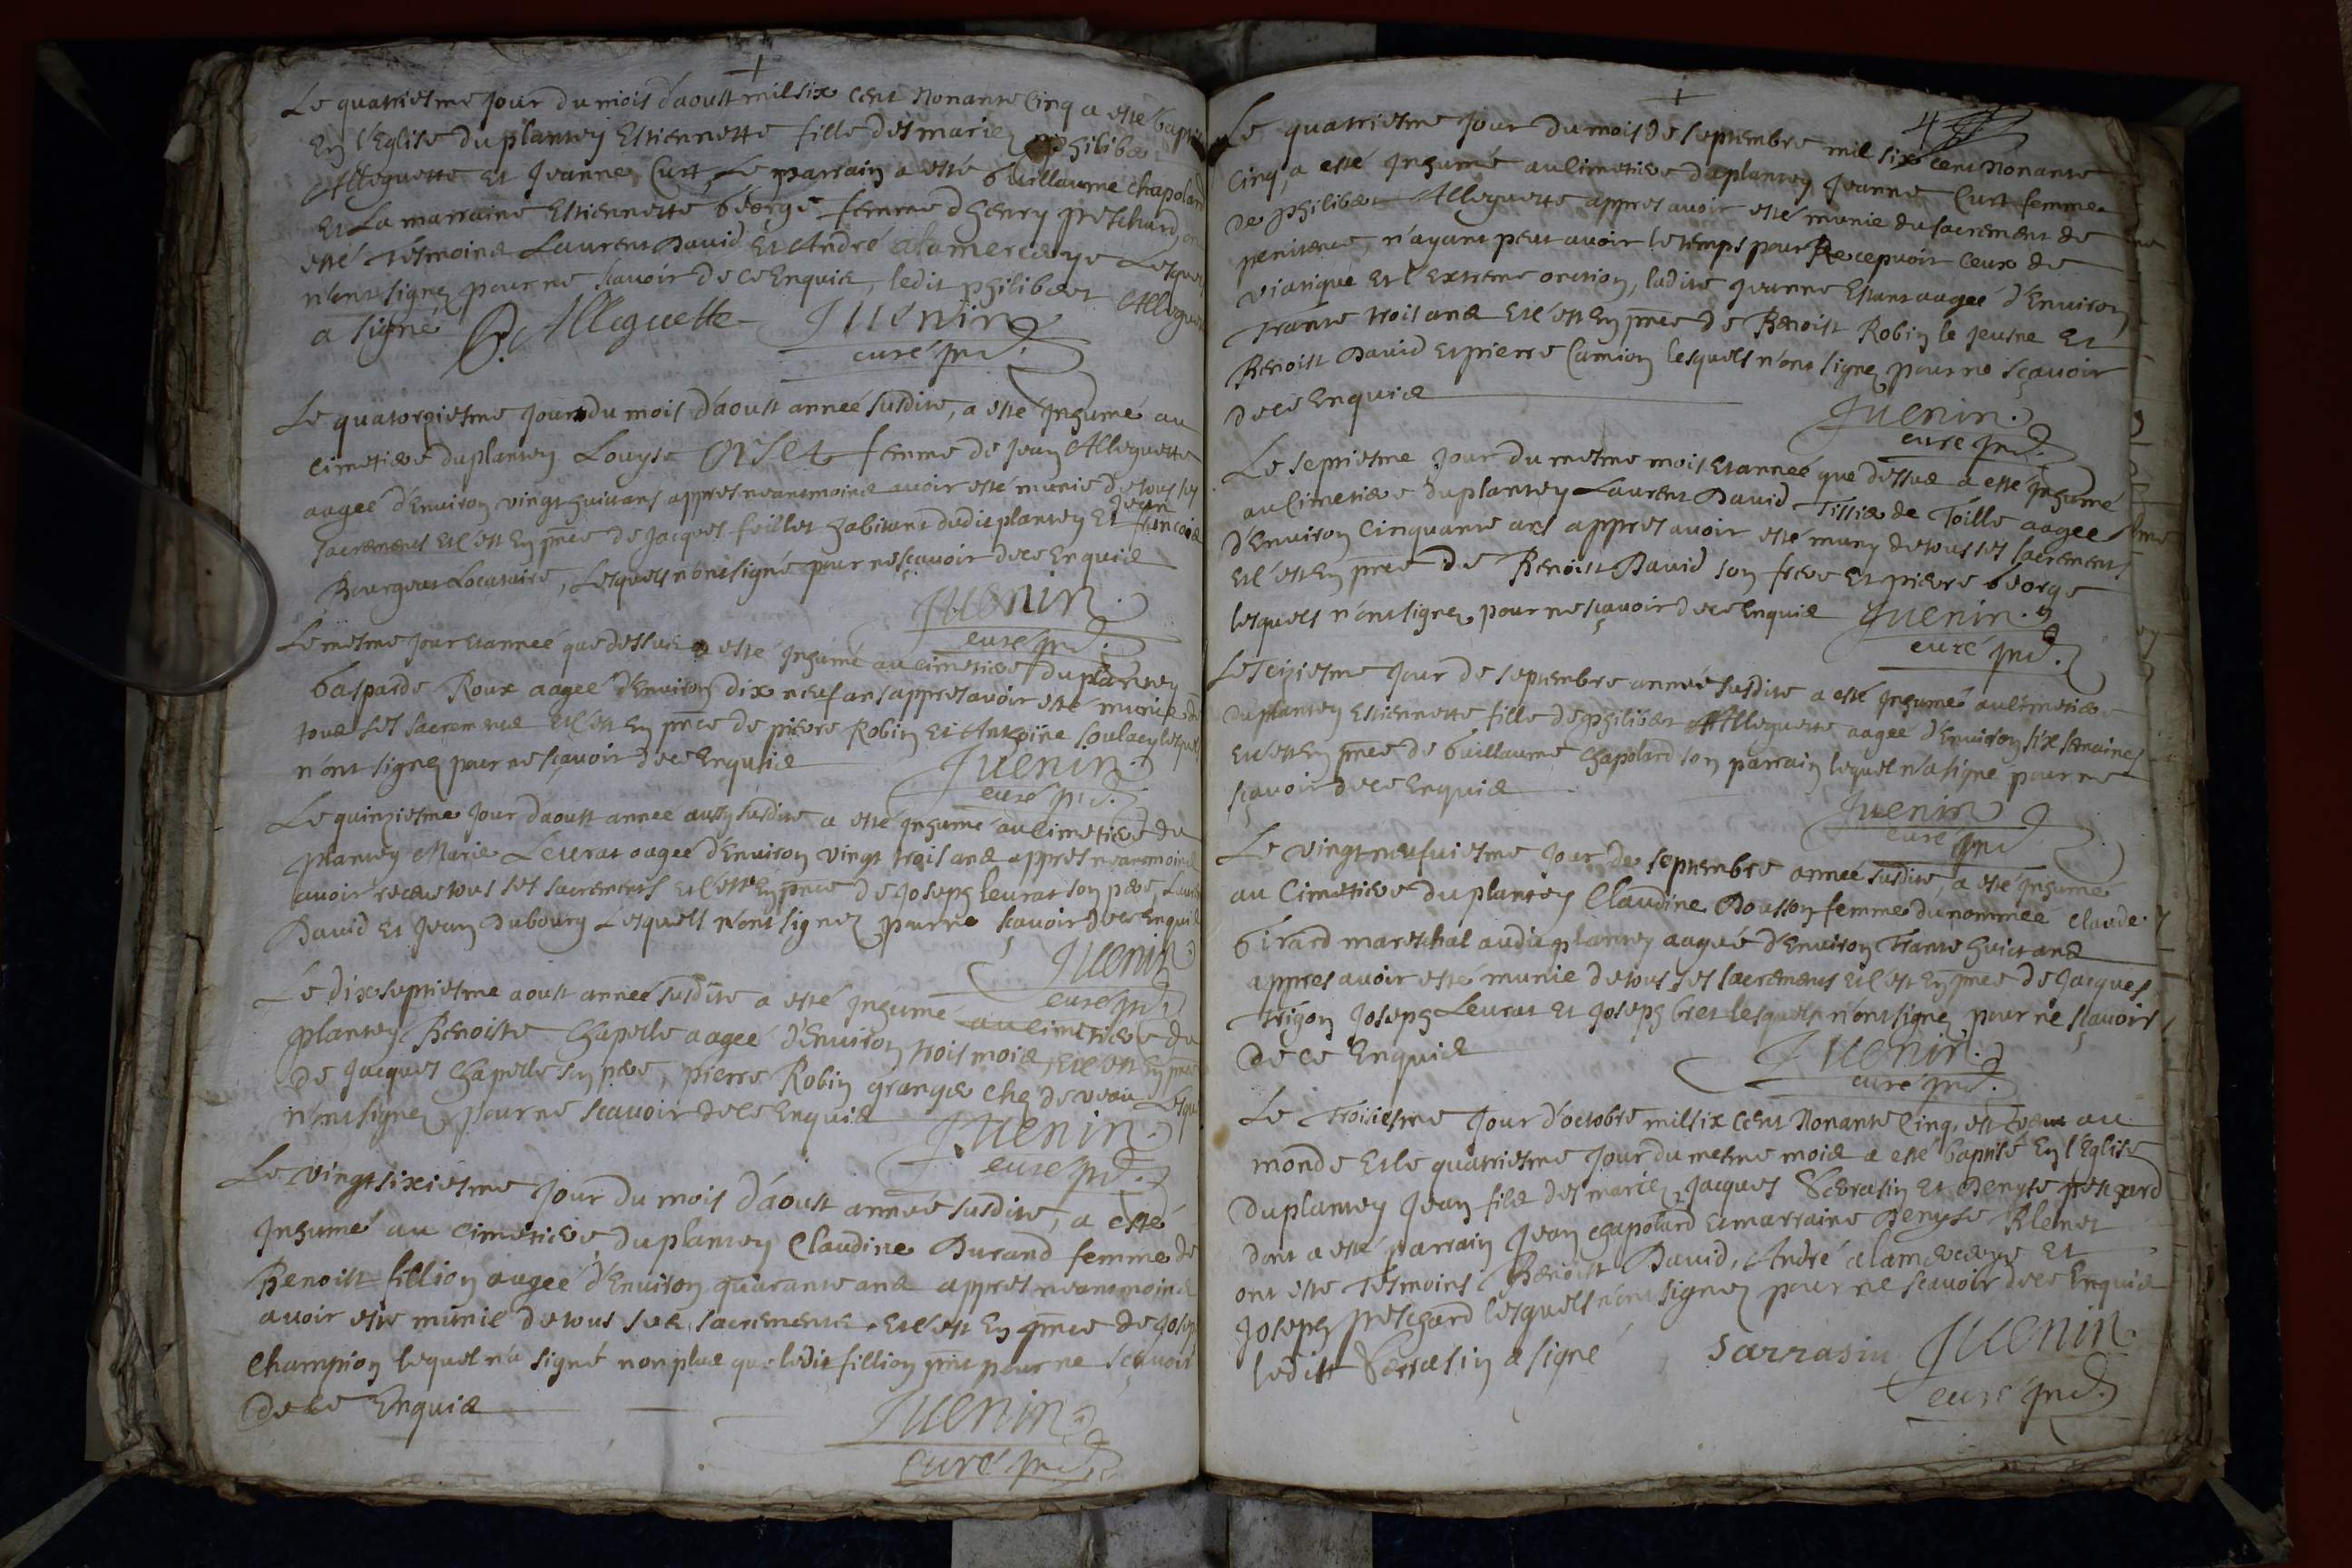 Le quatriesme jour du mois d'aoust mil six cent nonante cinq a esté bapti
En l'Eglise du plantey Estiennette fille des mariez philiber
Alleguette et Jeanne Curt, Le parrain a esté Guillaume chapolard
Et La marraine Estiennette George femme d'henry preschard, on
esté tesmoins Laurent David Et André alamercerye Lesque
n'ont signez pour ne scavoir de ce Enquis, ledit philibert Allegue
a signé P. Alleguette Juenin
curé pnt.
Le quatorziesme jour du mois d'aoust année susdite, a esté Inhumé au
cimetiere du plantey Louyse Orset femme de Jean Alleguette
aagée d'Environ vingt huit ans appres neantmoins avoir esté munie de tous ses
sacrements Et c'est En pnce de Jacques feillet habitant dudit plantey Et Jean francois
Bourgeat Locataire, Lesquels n'ont signé pour ne sçavoir de ce Enquis
Juenin.
curé pnt.
Le mesme jour et année que dessus a esté Inhumé au cimetiere du plantey
Gasparde Roux aagée d'Environ dix neuf ans appres avoir esté munie de
tous ses sacrements Et c'est En pnce de pierre Robin Et Antoine Coulacy lesque
n'ont signez pour ne sçavoir de ce Enquis Juenin.
curé pnt.
Le quinziesme jour d'aoust année aussy susdite a esté Inhumé au Cimetiere du
plantey Marie Levrat aagée d'Environ vingt trois ans appres neantmoins
avoir receu tous ses sacrements Et c'est En pnce de Joseph levrat son pere, Laur
David Et Jean Dubourg Lesquels n'ont signez pour ne sçavoir de ce Enquis
Juenin
curé pnt.
Le dix septiesme aoust année susdite a esté Inhumé au cimetiere du
plantey Benoiste Chapelle aagée d'Environ trois mois, Et c'est En pnce
de Jacques Chapelle son pere, pierre Robin granger che de veau Lesqu
n'ont signez pour ne scavoir de ce Enquis Juenin.
curé pnt.
Le vingt sixiesme jour du mois d'aoust année susdite, a esté
Inhumé au cimetiere du plantey Claudine Durand femme de
Benoist fillion aagée d'Environ quarante ans appres neantmoins
avoir esté munie de tous ses sacrements Et c'est En pnce de Josep
Champion lequel n'a signé non plus que ledit fillion pnt pour ne sçavoir
de ce Enquis
Juenin
curé pnt.
4
Le quatriesme jour du mois de septembre mil six cent nonante
cinq, a esté Inhumé au Cimetiere du plantey Jeanne Curt femme
de philibert Alleguette appres avoir esté munie du sacrement de
penitence, n'ayant peut avoir le temps pour Recepvoir ceux de
viatique Et l'Extreme onction, ladite Jeanne Estant aagée d'Environ
trante trois ans Et c'est En pnce de Benoist Robin le jeusne Et
Benoist David Et pierre Camion lesquels n'ont signez pour ne sçavoir
de ce Enquis
Juenin.
curé pnt.
Le septiesme jour du mesme mois Et année que dessus a esté Inhumé
au Cimetiere du plantey Laurent David Tissier de Toille aagée
d'Environ Cinquante ans appres avoir esté muny de tous ses sacrements
Et c'est En pnce de Benoist David son frere Et pierre George
lesquels n'ont signez pour ne sçavoir de ce Enquis Juenin.
curé pnt.
Le seiziesme jour de septembre année susdite a esté Inhumé au Cimetiere
du plantey Estiennette fille de philibert Alleguette aagée d'Environ six semaines
Et c'est En pnce de Guillaume Chapolard son parrain lequel n'a signé pour ne
sçavoir de ce Enquis
Juenin
curé pnt.
Le vingt neufviesme jour de septembre année susdite, a esté Inhumé
au Cimetiere du plantey Claudine Bousson femme du nommée Claude
Girard mareschal audit plantey aagée d'Environ trante huict ans
appres avoir esté munie de tous ses sacrements Et c'est En pnce de Jacques
trigon Joseph Levrat Et Joseph bret lesquels n'ont signez pour ne sçavoir
de ce Enquis Juenin.
curé pnt.
Le troisiesme jour d'octobre mil six cent nonante Cinq, est venu au
monde Et le quatriesme jour du mesme mois a esté baptisé En l'Eglise
du plantey Jean fils des mariez Jacques Serrasin Et Denyse preschard
dont a esté parrain Jean chapolard Et marraine Denyse Blenet
ont esté tesmoins Benoist David, André alamercerye Et
Joseph preschard lesquels n'ont signez pour ne scavoir de ce Enquis
ledit Serrasin a signé, Sarrasin Juenin.
curé pnt.